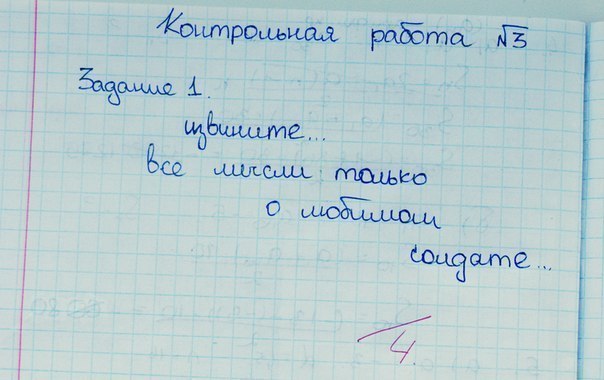 Контрольная работа №3
Задание 1.
извините...
все мысли только
о любимом
солдате...
4